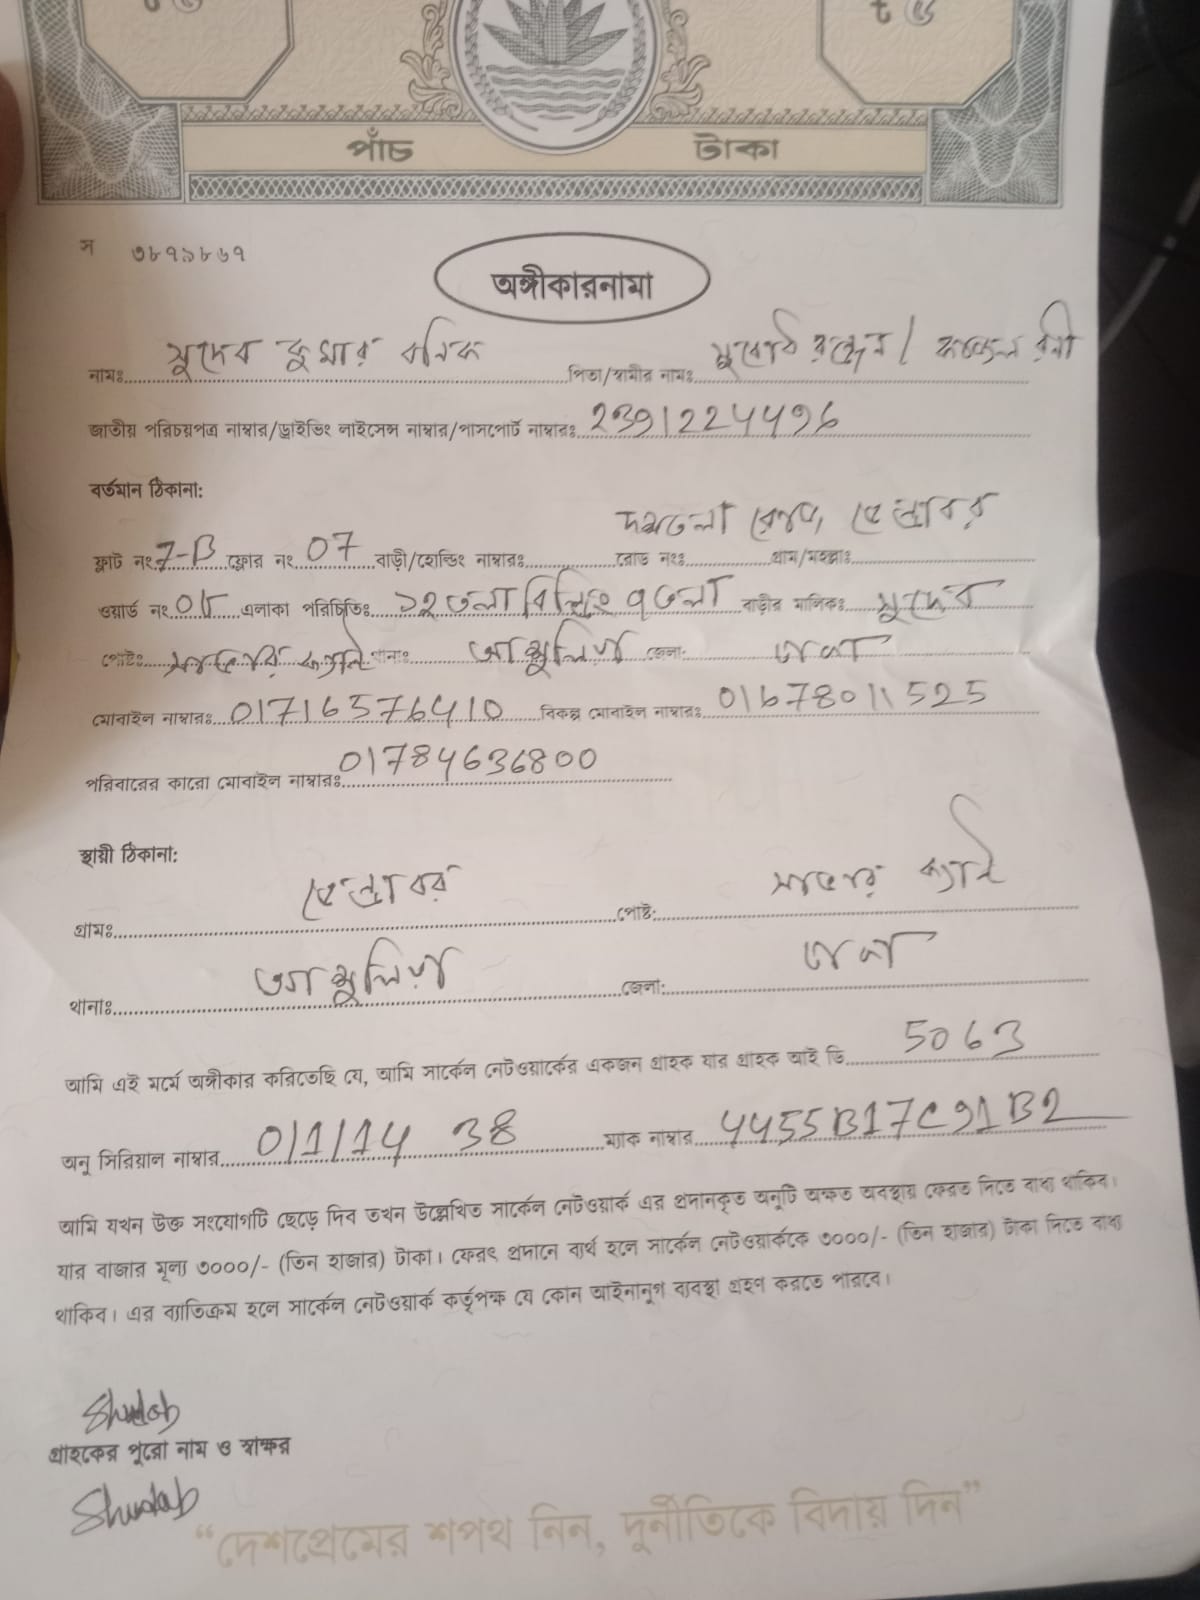 ৳ ৫
৳ ৫
পাঁচ টাকা
স ৩৮৭৯৮৬৭
অঙ্গীকারনামা
নামঃ সুদেব কুমার বনিক পিতা/স্বামীর নামঃ
জাতীয় পরিচয়পত্র নাম্বার/ড্রাইভিং লাইসেন্স নাম্বার/পাসপোর্ট নাম্বারঃ 2391224496
বর্তমান ঠিকানা:
ফ্লাট নং 7-B ফ্লোর নং 07 বাড়ী/হোল্ডিং নাম্বারঃ রোড নংঃ দশতলা রোড, গ্রাম/মহল্লাঃ
ওয়ার্ড নং 05 এলাকা পরিচিতিঃ ১২ তলা বিল্ডিং ৭ তলা বাড়ীর মালিকঃ সুদেব
পোষ্টঃ থানাঃ আশুলিয়া জেলা: ঢাকা
মোবাইল নাম্বারঃ 01716576410 বিকল্প মোবাইল নাম্বারঃ 01678011525
পরিবারের কারো মোবাইল নাম্বারঃ 01784636800
স্থায়ী ঠিকানা:
গ্রামঃ পোষ্ট:
থানাঃ আশুলিয়া জেলা: ঢাকা
আমি এই মর্মে অঙ্গীকার করিতেছি যে, আমি সার্কেল নেটওয়ার্কের একজন গ্রাহক যার গ্রাহক আই ডি 5063
অনু সিরিয়াল নাম্বার 0/1/14 38 ম্যাক নাম্বার 4455B17C91B2
আমি যখন উক্ত সংযোগটি ছেড়ে দিব তখন উল্লেখিত সার্কেল নেটওয়ার্ক এর প্রদানকৃত অনুটি অক্ষত অবস্থায় ফেরত দিতে বাধ্য থাকিব।
যার বাজার মূল্য ৩০০০/- (তিন হাজার) টাকা। ফেরৎ প্রদানে ব্যর্থ হলে সার্কেল নেটওয়ার্ককে ৩০০০/- (তিন হাজার) টাকা দিতে বাধ্য
থাকিব। এর ব্যাতিক্রম হলে সার্কেল নেটওয়ার্ক কর্তৃপক্ষ যে কোন আইনানুগ ব্যবস্থা গ্রহণ করতে পারবে।
গ্রাহকের পুরো নাম ও স্বাক্ষর
“দেশপ্রেমের শপথ নিন, দুর্নীতিকে বিদায় দিন”